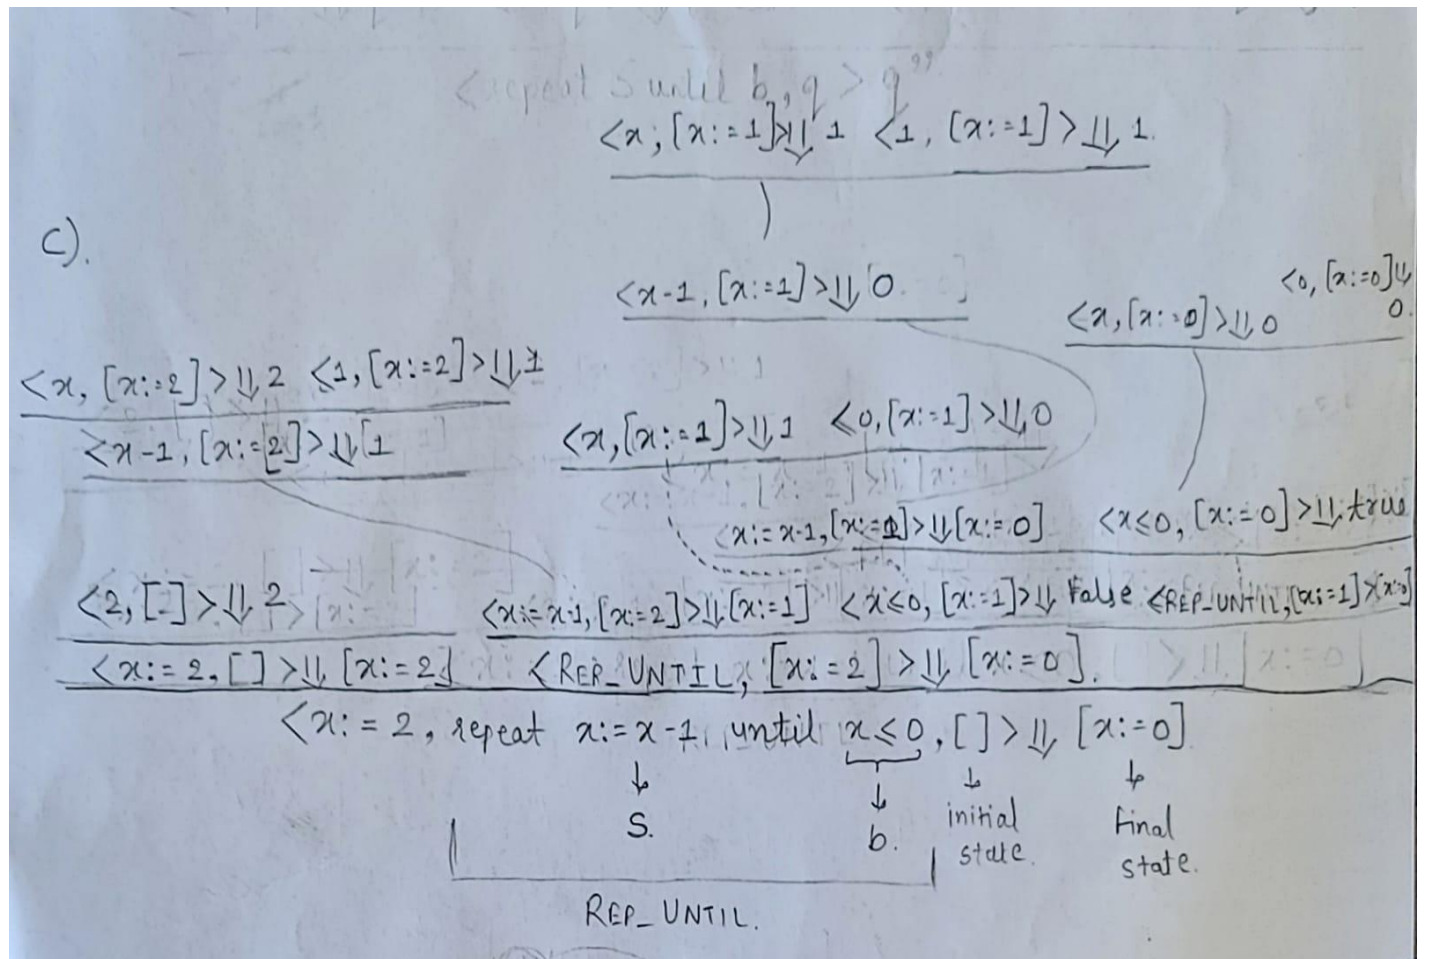 <repeat S until b, q > q"
<x, [x:=1]>⇓ 1 <1, [x:=1]>⇓ 1.
c).
<x-1, [x:=1]>⇓ 0.
<0, [x:=0]⇓ 0.
<x, [x:=0]>⇓ 0
<x, [x:=2]>⇓ 2 <1, [x:=2]>⇓ 1
<x-1, [x:=2]>⇓ 1
<x, [x:=1]>⇓ 1 <0, [x:=1]>⇓ 0
<x:=x-1, [x:=1]>⇓ [x:=0] <x≤0, [x:=0]>⇓ true
<2, []>⇓ 2
<x:=x-1, [x:=2]>⇓ [x:=1] <x≤0, [x:=1]>⇓ False <REP_UNTIL, [x:=1]>[x:=0]
<x:=2, []>⇓ [x:=2] <REP_UNTIL, [x:=2]>⇓ [x:=0].
<x:=2, repeat x:=x-1, until x≤0, []>⇓ [x:=0]
S.
b.
initial state.
Final state.
REP_UNTIL.